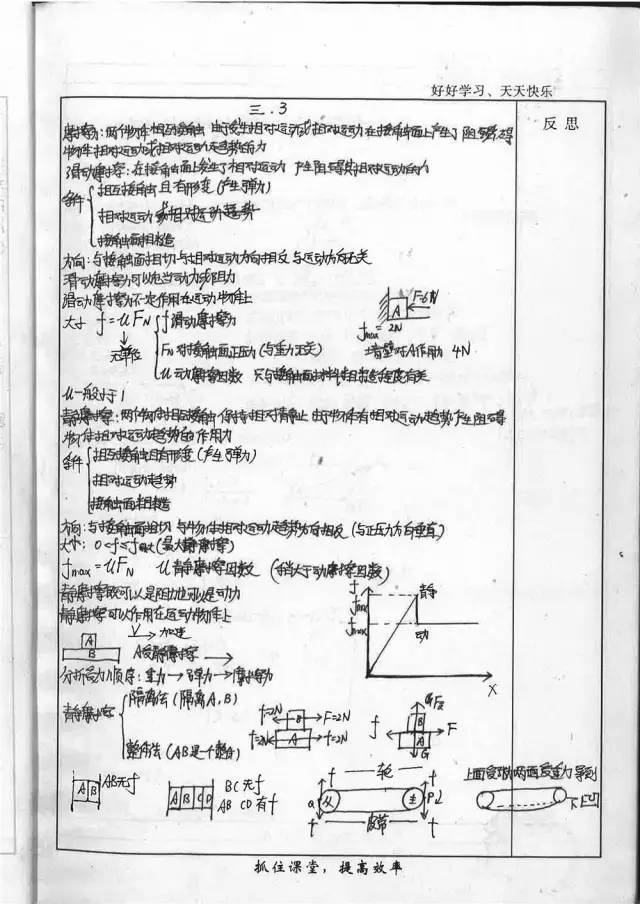 好好学习、天天快乐
三.3
反思
摩擦力:两个物体相互接触 由于发生相对运动或相对运动 在接触面上产生了阻碍
物体相对运动或相对运动趋势的力
滑动摩擦:在接触面上发生了相对运动 产生阻碍其相对运动的力
条件
相互接触且有形变(产生弹力)
相对运动 或相对运动趋势
接触面粗糙
方向:与接触面相切 与相对运动方向相反 与运动方向无关
滑动摩擦力可以充当动力或阻力
滑动摩擦力不一定作用在运动物体上
A F=6N
fmax=2N
墙壁对A作用力 4N
大小 f=uFN
无单位
f滑动摩擦力
FN对接触面正压力(与重力无关)
u动摩擦因数 只与接触面材料粗糙程度有关
u一般小于1
静摩擦:两个物体相互接触 保持相对静止 由于物体有相对运动趋势产生阻碍
物体相对运动趋势的作用力
条件
相互接触且有形变(产生弹力)
相对运动趋势
接触面粗糙
方向:与接触面相切 与物体相对运动趋势方向相反(与正压力方向垂直)
大小:0<f≤fmax(最大静摩擦)
fmax=uFN u静摩擦因数(稍大于动摩擦因数)
静摩擦既可以是阻力也可以是动力
静摩擦可以作用在运动物体上
f
fmax
fmax
静
动
X
A
B
V 加速
A受静摩擦
分析受力顺序:重力→弹力→摩擦力
静摩擦
隔离法(隔离A,B)
整体法(AB是一个整体)
f=2N B F=2N
f=2N A f=2N
f F
B
A
G
A B AB无f
A B C D
BC无f
AB CD有f
f 一轮 f
从 主
f 皮带 f
上面受环 两面受重力
下凹
抓住课堂,提高效率